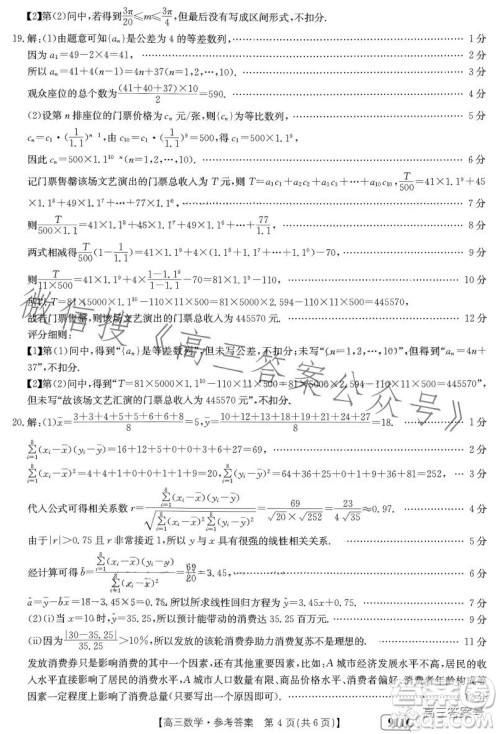 【2】第(2)问中,若得到3π/20≤m≤3π/4,但最后没有写成区间形式,不扣分.
19.解:(1)由题意可知{aₙ}是公差为4的等差数列, 1分
因为a₁=49-2×4=41, 2分
所以aₙ=41+4(n-1)=4n+37(n=1,2,…,10). 3分
观众座位的总个数为(41+40+37)×10/2=590. 4分
(2)设第n排座位的门票价格为cₙ元/张,则{cₙ}为等比数列,
且cₙ=c₁×(1/1.1)ⁿ⁻¹,由c₁₀=c₁·(1/1.1)⁹=500,得c₁=500×1.1⁹,
因此cₙ=500×1.1¹⁰⁻ⁿ(n=1,2,…,10). 6分
记门票售罄该场文艺演出的门票总收入为T元,则T=a₁c₁+a₂c₂+a₃c₃+…+a₁₀c₁₀,T/500=41×1.1⁹+45
×1.1⁸+49×1.1⁷+…+77, 7分
则T/(500×1.1)=41×1.1⁸+45×1.1⁷+…+77/1.1, 8分
两式相减得T/500(1-1/1.1)=41×1.1⁹+4(1.1⁸+1.1⁷+…+1)-77/1.1, 9分
则T/(11×500)=41×1.1⁹+4×(1-1.1⁹)/(1-1.1)-70=81×1.1⁹-110, 10分
故T=81×5000×1.1¹⁰-110×11×500=81×5000×2.594-110×11×500=445570,
故若门票售罄,则该场文艺演出的门票总收入为445570元. 12分
评分细则:
【1】第(1)问中,得到“{aₙ}是等差数列”,但未写公差,不扣分,未单独计算a₁,但得到“aₙ=4n+
37”,不扣分.
【2】第(2)问中,得到“T=81×5000×1.1¹⁰-110×11×500=81×5000×2.594-110×11×500=445570”,
但未写“故该场文艺汇演的门票总收入为445570元”,不扣分.
20.解:(1)x̄=(3+3+4+5+5+6+6+8)/8=5,ȳ=(10+12+13+18+19+21+24+27)/8=18. 1分
∑(xᵢ-x̄)(yᵢ-ȳ)=16+12+5+0+0+3+6+27=69, 2分
∑(xᵢ-x̄)²=4+4+1+0+0+1+1+9=20,∑(yᵢ-ȳ)²=64+36+25+0+1+9+36+81=252, 3分
代入公式可得相关系数r=∑(xᵢ-x̄)(yᵢ-ȳ)/√(∑(xᵢ-x̄)²∑(yᵢ-ȳ)²)=69/(√20×√252)=23/(4√35)≈0.97. 4分
由于|r|>0.75且r非常接近1,所以y与x具有很强的线性相关关系. 5分
经计算可得b̂=∑(xᵢ-x̄)(yᵢ-ȳ)/∑(xᵢ-x̄)²=69/20=3.45, 6分
â=ȳ-b̂x̄=18-3.45×5=0.75,所以所求线性回归方程为ŷ=3.45x+0.75. 7分
(2)(i)当x=10时,ŷ=35.25,所以预计能带动的消费达35.25百万元. 9分
(ii)因为|30-35.25|/35.25>10%,所以发放的该轮消费券助力消费复苏不是理想的. 11分
发放消费券只是影响消费的其中一个因素,还有其他重要因素,比如:A城市经济发展水平不高,A城市居民的收入水平直接影响了居民的消费水平;A城市人口数量有限、商品价格水平、消费者偏好、消费者年龄构成等因素一定程度上影响了消费总量.(只要写出一个原因即可) 12分
【高三数学·参考答案 第4页(共6页)】
·910C·
微信搜《高三答案公众号》
高三答案号